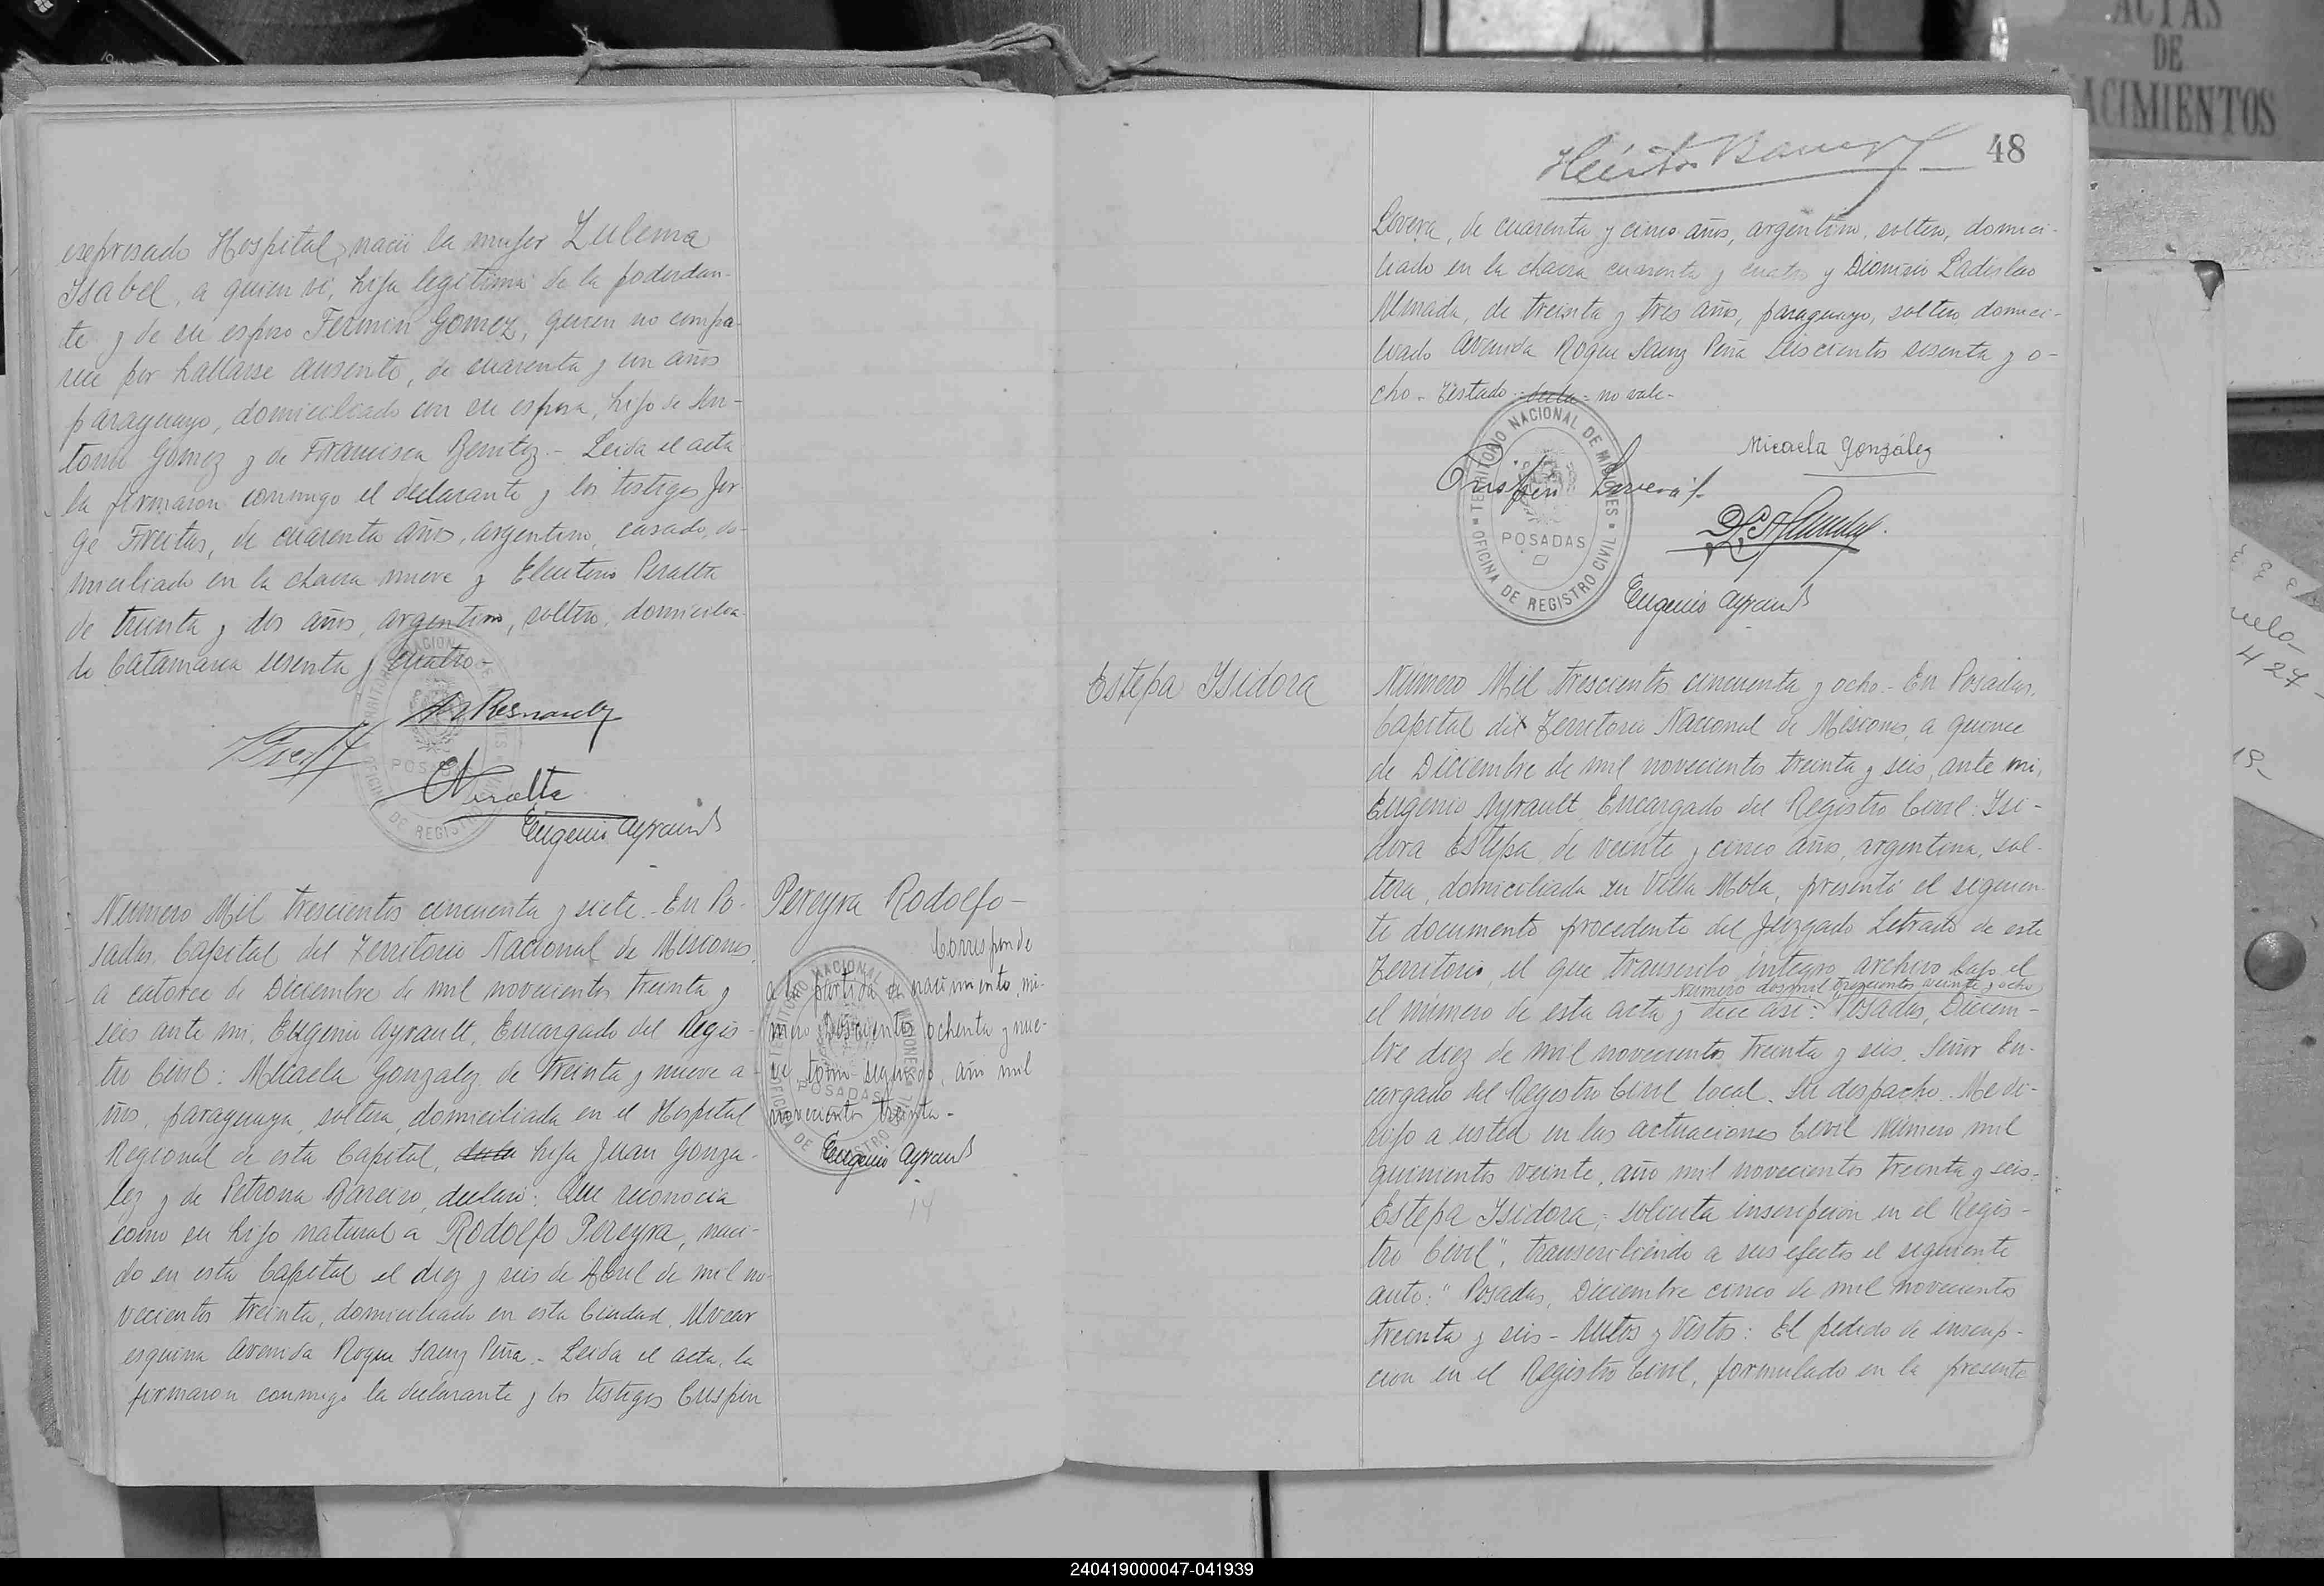 expresado Hospital, nació la mujer Zulema
Isabel, a quien vi, hija legitima de la poderdan-
te y de su esposo Fermin Gomez, quien no compa-
rece por hallarse ausente, de cuarenta y un años
paraguayo, domiciliado con su esposa, hijo de An-
tonio Gomez y de Francisca Benitez.- Leida el acta
la firmaron conmigo el declarante y los testigos Jor-
ge Freitas, de cuarenta años, argentino, casado, do-
miciliado en la chacra nueve y Eleuterio Peralta
de treinta y dos años, argentino, soltero, domicilia-
do Catamarca sesenta y cuatro-
TERRITORIO NACIONAL DE MISIONES
POSADAS
OFICINA DE REGISTRO CIVIL
Peralta
Eugenio Ayrault
Número Mil trescientos cincuenta y siete.- En Po-
sadas Capital del Territorio Nacional de Misiones,
a catorce de Diciembre de mil novecientos treinta y
seis ante mi, Eugenio Ayrault, Encargado del Regis-
tro Civil: Micaela Gonzalez de treinta y nueve a-
ños, paraguaya, soltera, domiciliada en el Hospital
Regional de esta Capital, hija Juan Gonza-
lez y de Petrona Bareiro, declaró: Que reconocia
como su hijo natural a Rodolfo Pereyra, naci-
do en esta Capital el diez y seis de Abril de mil no-
vecientos treinta, domiciliado en esta Ciudad, Alvear
esquina Avenida Roque Saenz Peña.- Leida el acta, la
firmaron conmigo la declarante y los testigos Crispin
Pereyra Rodolfo-
Corresponde
a la partida de nacimiento, nú-
mero doscientos ochenta y nue-
ve tomo segundo, año mil
novecientos treinta-
TERRITORIO NACIONAL DE MISIONES
POSADAS
OFICINA DE REGISTRO CIVIL
Eugenio Ayrault
14
48
Lovera, de cuarenta y cinco años, argentino, soltero, domici-
liado en la chacra cuarenta y cuatro y Dionisio Ladislao
Almada, de treinta y tres años, paraguayo, soltero, domici-
liado Avenida Roque Saenz Peña seiscientos sesenta y o-
cho.- Testado: no vale-
TERRITORIO NACIONAL DE MISIONES
POSADAS
OFICINA DE REGISTRO CIVIL
Micaela González
Crispin Lovera
Eugenio Ayrault
Estepa Isidora
Número Mil trescientos cincuenta y ocho.- En Posadas,
Capital del Territorio Nacional de Misiones, a quince
de Diciembre de mil novecientos treinta y seis, ante mi,
Eugenio Ayrault Encargado del Registro Civil: Isi-
dora Estepa, de veinte y cinco años, argentina, sol-
tera, domiciliada en Villa Mola, presentó el siguien-
te documento procedente del Juzgado Letrado de este
Territorio, el que transcribo integro, archivo bajo el
Número dosmil trescientos veinte y ocho
el número de esta acta y dice asi: "Posadas, Diciem-
bre diez de mil novecientos treinta y seis. Señor En-
cargado del Registro Civil local. Su despacho. Me di-
rijo a usted en las actuaciones Civil Número mil
quinientos veinte, año mil novecientos treinta y seis:
Estepa Isidora; solicita inscripcion en el Regis-
tro Civil", transcribiendo a sus efectos el siguiente
auto: "Posadas, Diciembre cinco de mil novecientos
treinta y seis- Autos y Vistos: El pedido de inscrip-
cion en el Registro Civil, formulado en la presente
ACTAS
DE
NACIMIENTOS
427
240419000047-041939